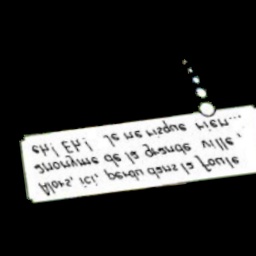 Alors, ici, perdu dans la foule
anonyme de la grande ville,
eh! Eh! Je ne risque rien...